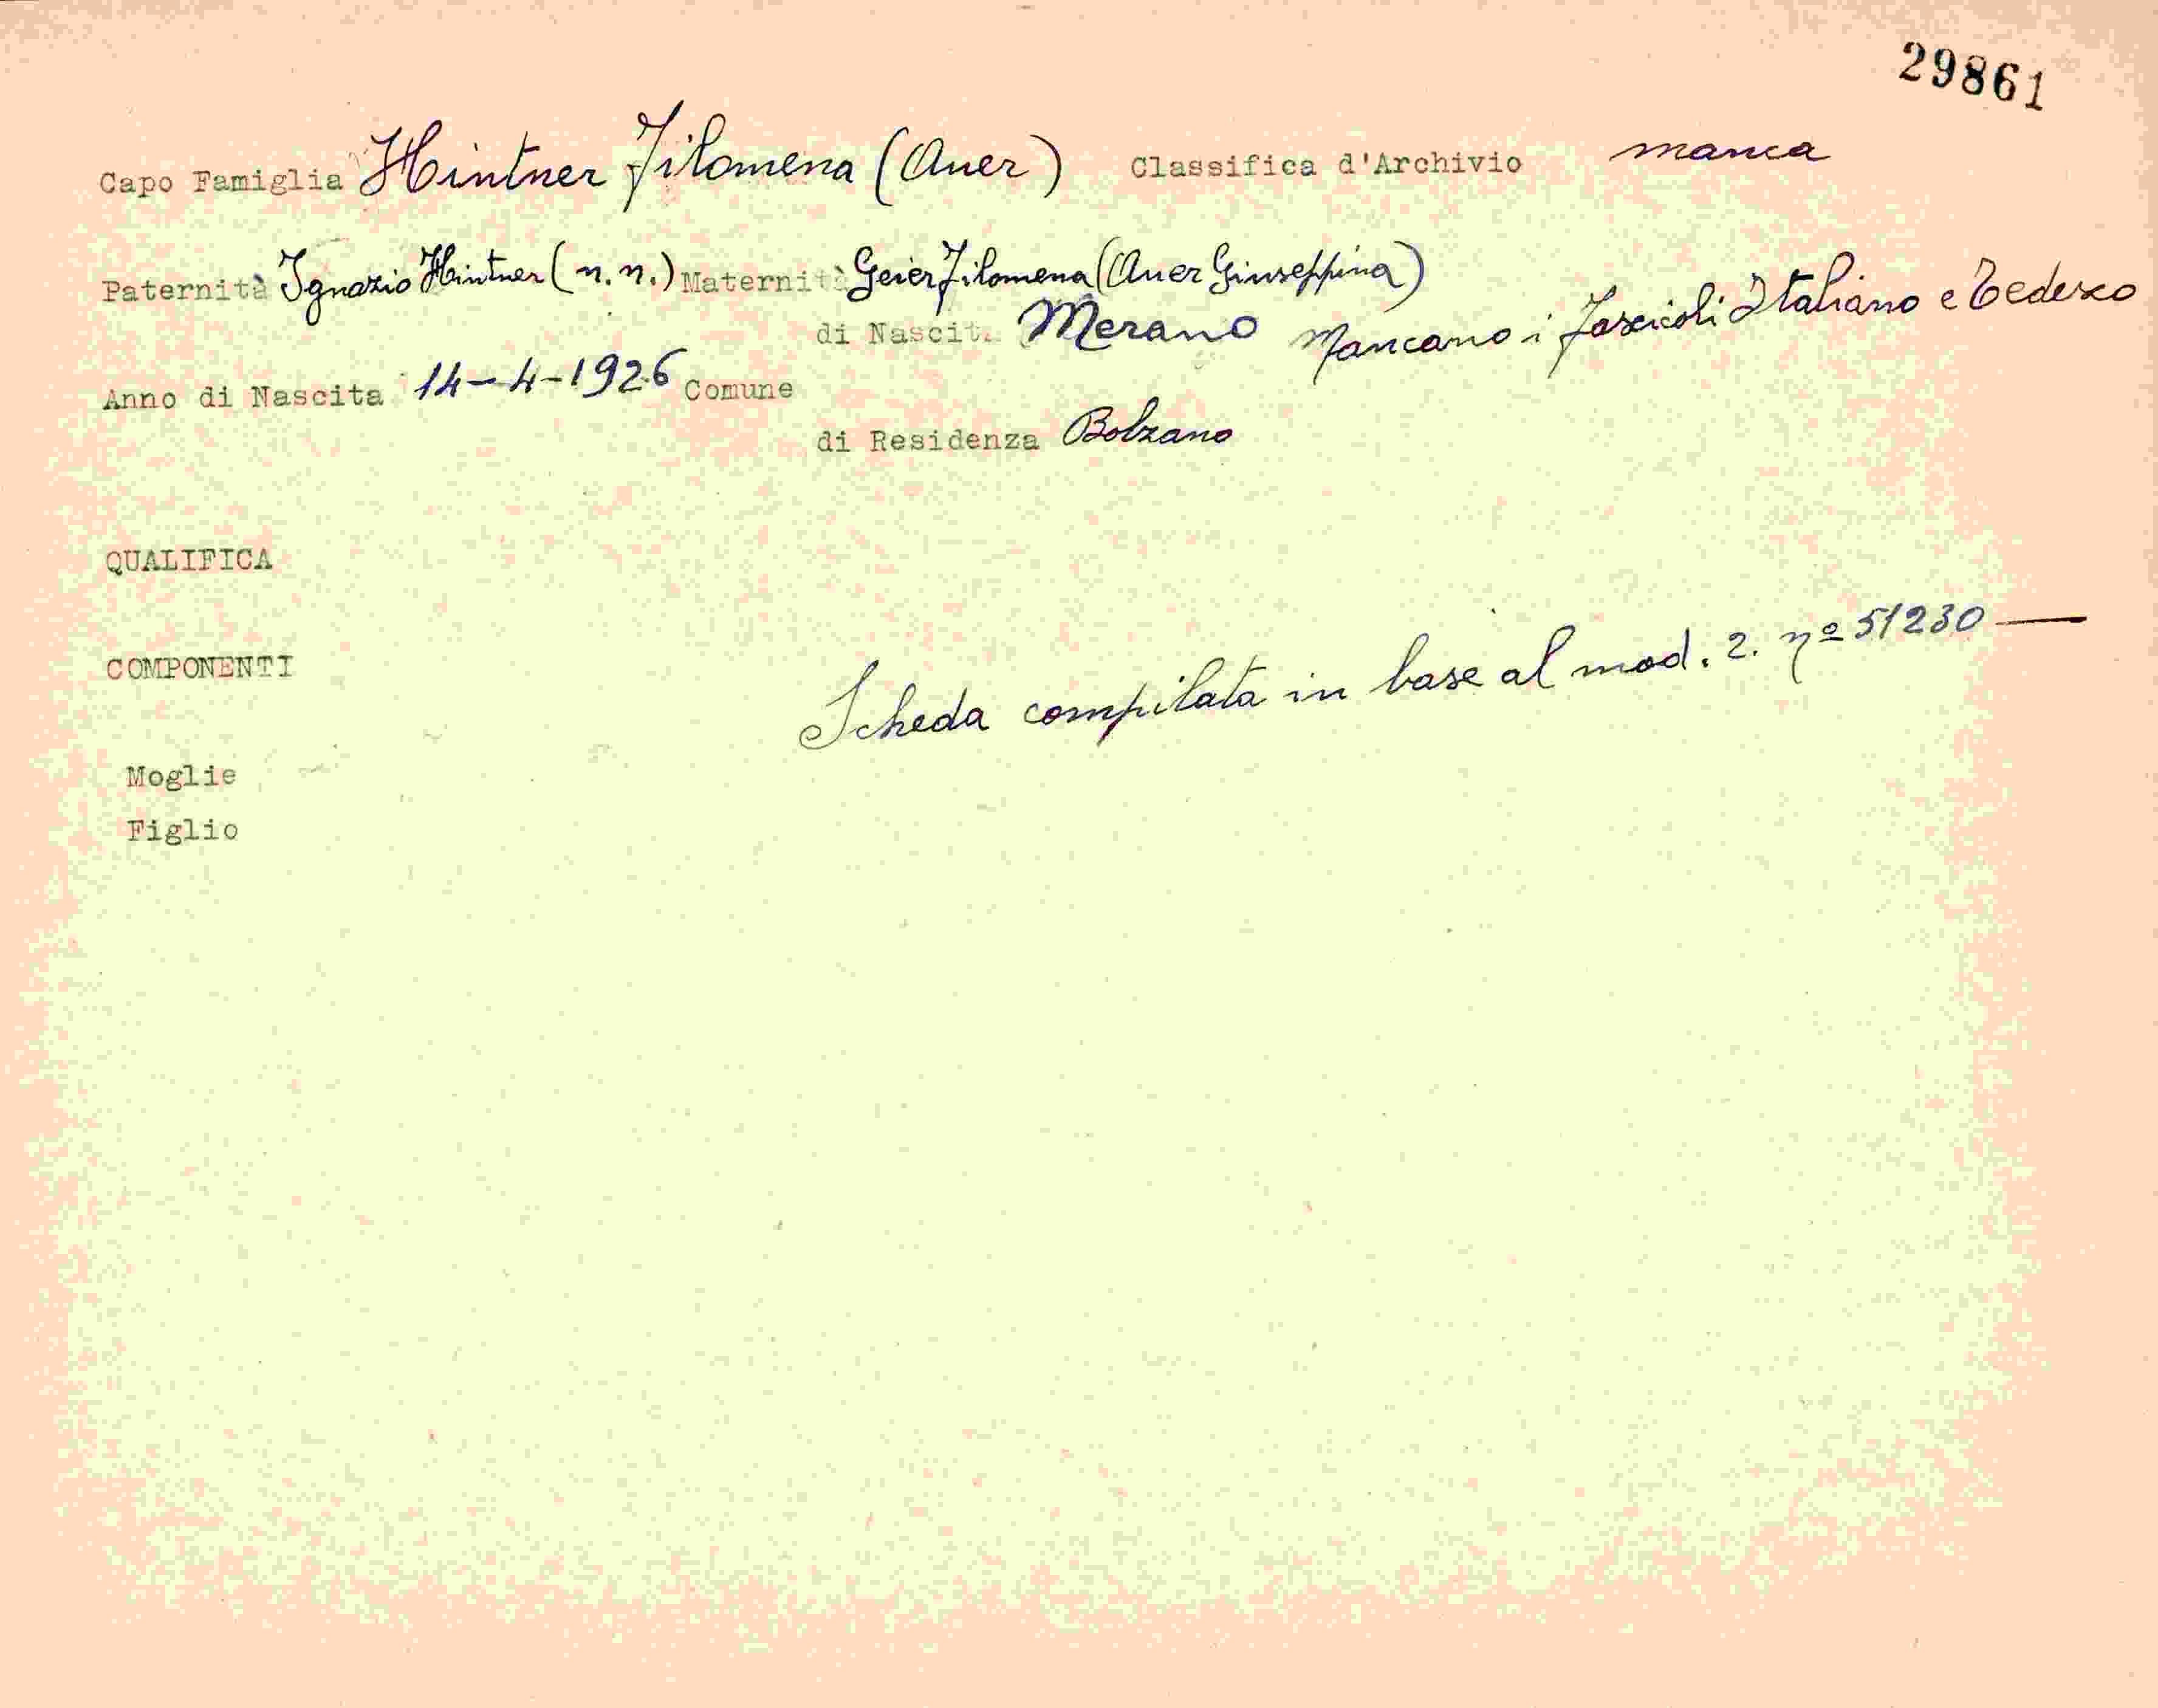 29861
Capo Famiglia Hintner Filomena (Auer) Classifica d'Archivio manca
Paternità Ignazio Hintner (n.n.) Maternità Geier Filomena (Auer Giuseppina)
di Nascita Merano Mancano i fascicoli Italiano e Tedesco
Anno di Nascita 14-4-1926 Comune
di Residenza Bolzano
QUALIFICA
COMPONENTI
Scheda compilata in base al mod. 2. nº 51230 —
Moglie
Figlio